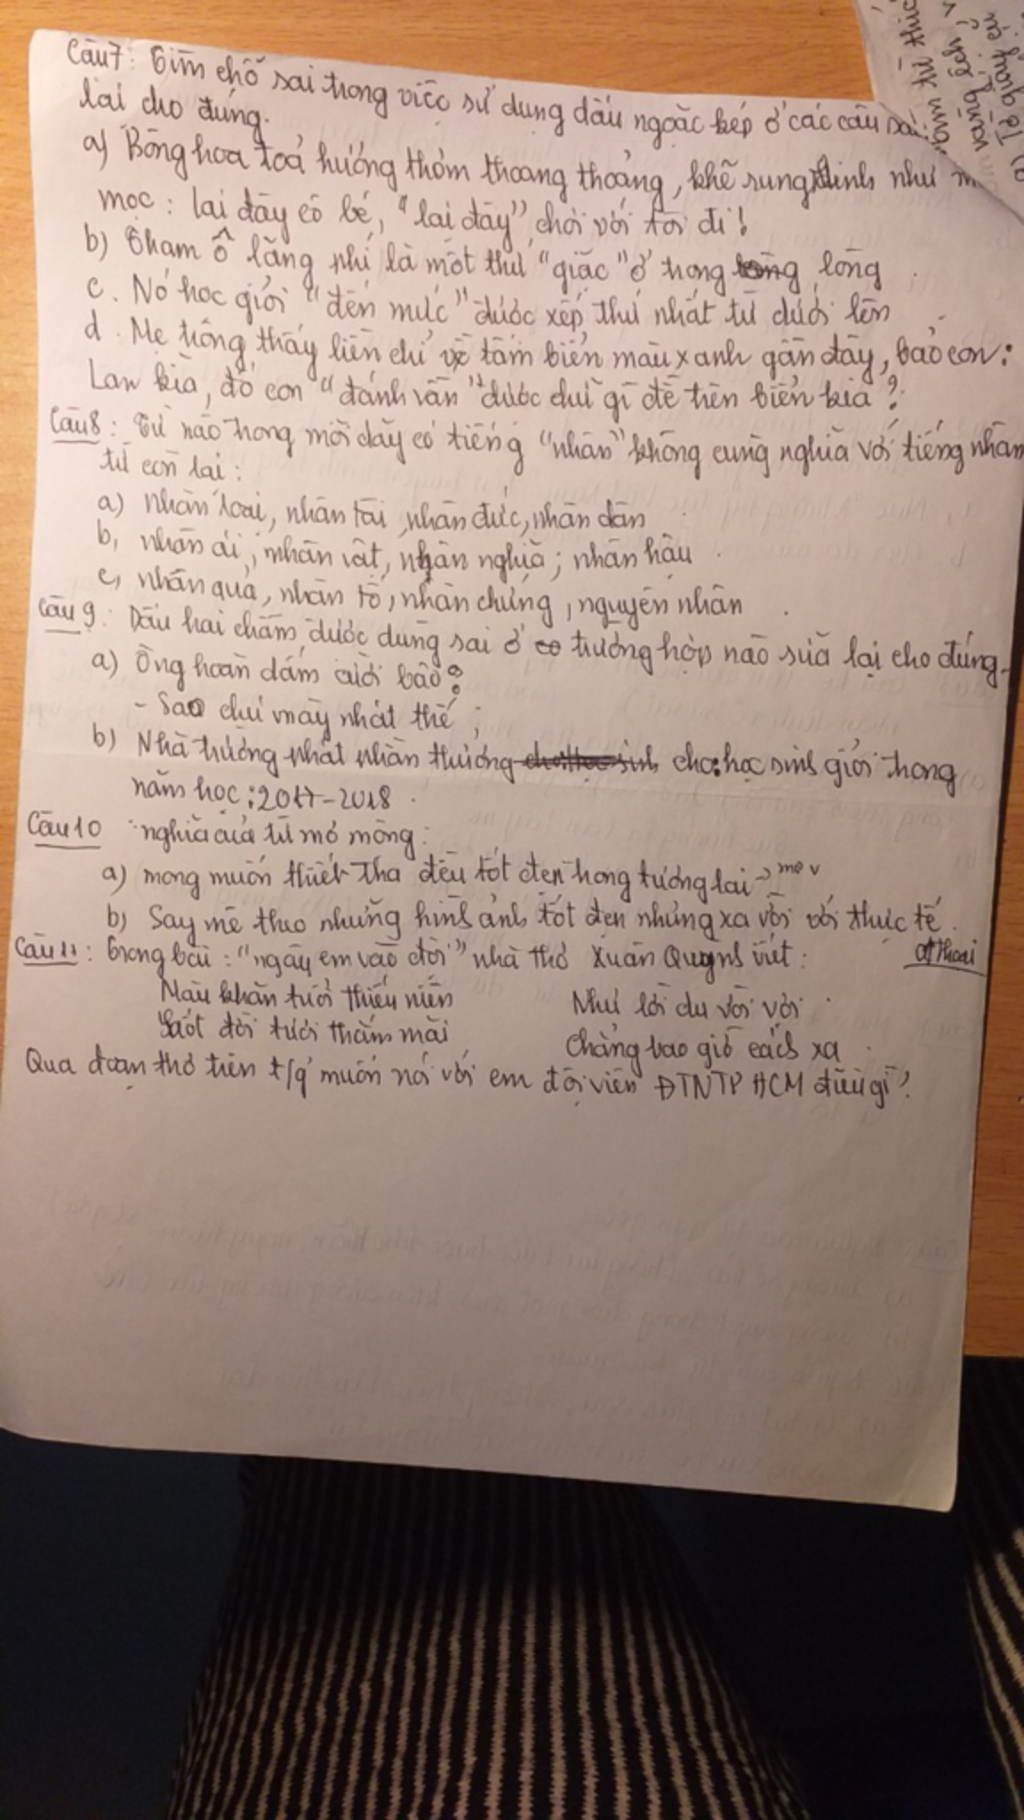 Câu 7: Tìm chỗ sai trong việc sử dụng dấu ngoặc kép ở các câu sau
lại cho đúng.
a) Bông hoa toả hương thơm thoang thoảng, khẽ rung rinh như
mọc: lại đây cô bé, "lại đây" chơi với tôi đi!
b) Tham ô lãng phí là một thứ "giặc" ở trong lòng
c. Nó học giỏi "đến mức" được xếp thứ nhất từ dưới lên
d. Mẹ trông thấy liền chỉ về tấm biển màu xanh gần đây, bảo con:
Lan kìa, đố con "đánh vần" được chữ gì đề trên biển kia?
Câu 8: Từ nào trong mỗi dãy có tiếng "nhân" không cùng nghĩa với tiếng nhân
từ còn lại:
a) nhân loại, nhân tài, nhân đức, nhân dân
b, nhân ái, nhân vật, nhân nghĩa; nhân hậu
c, nhân quả, nhân tố, nhân chứng, nguyên nhân
Câu 9: Dấu hai chấm được dùng sai ở trường hợp nào sửa lại cho đúng.
a) Ông hoàn dấm cười bảo:
- Sao chú mày nhát thế;
b) Nhà trường phát phần thưởng cho: học sinh giỏi trong
năm học: 2017-2018.
Câu 10 nghĩa của từ mơ mộng:
a) mong muốn thiết tha đều tốt đẹp trong tương lai →
b) Say mê theo những hình ảnh tốt đẹp nhưng xa vời với thực tế.
Câu 11: Trong bài: "ngày em vào đội" nhà thơ Xuân Quỳnh viết:
Màu khăn tuổi thiếu niên Như lời ru vời vợi
Suốt đời tươi thắm mãi Chẳng bao giờ cách xa
Qua đoạn thơ trên t/g muốn nói với em đội viên ĐTNTP HCM điều gì?